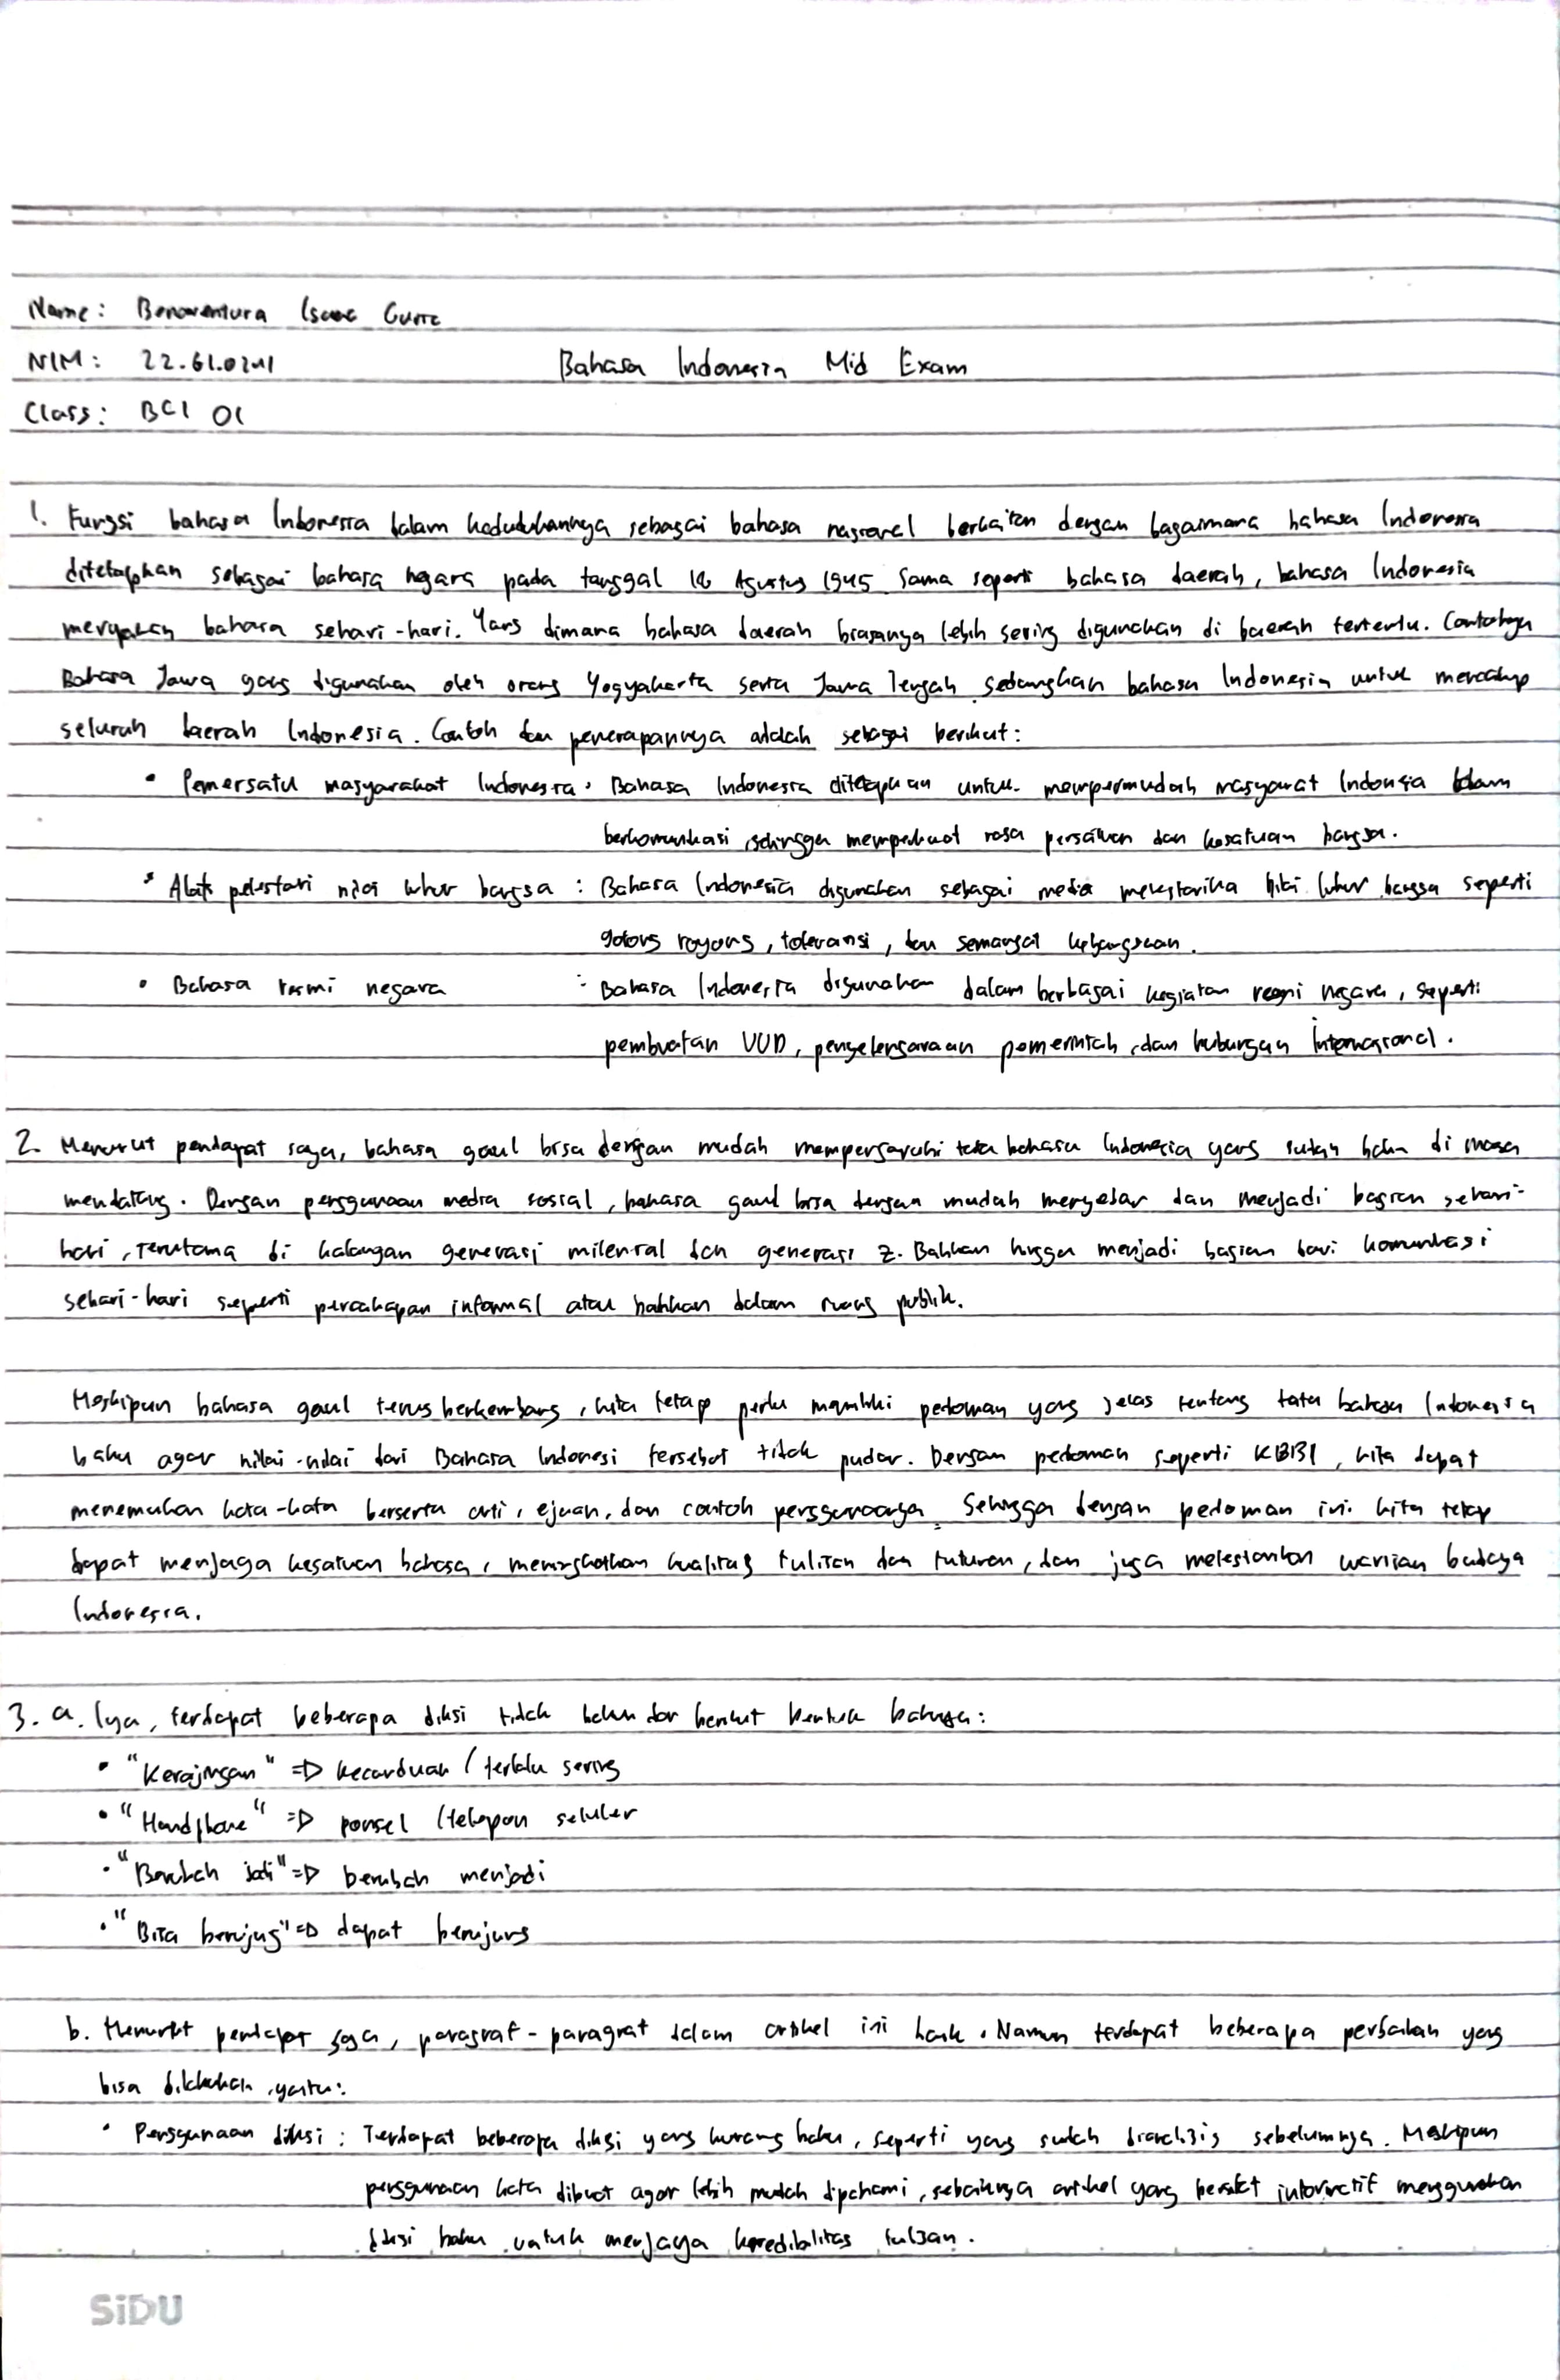 Name: Bonaventura Isaac
NIM: 22.61.0241
Bahasa Indonesia Mid Exam
Class: BCI 01
1. Fungsi bahasa Indonesia dalam kedudukannya sebagai bahasa nasional berkaitan dengan bagaimana bahasa Indonesia
ditetapkan sebagai bahasa ngara pada tanggal 18 Agustus 1945. Sama seperti bahasa daerah, bahasa Indonesia
merupakan bahasa sehari-hari. Yang dimana bahasa daerah biasanya lebih sering digunakan di daerah tertentu. Contohnya
Bahasa Jawa yang digunakan oleh orang Yogyakarta serta Jawa Tengah, sedangkan bahasa Indonesia untuk mencakup
seluruh daerah Indonesia. Contoh dan penerapannya adalah sebagai berikut:
• Pemersatu masyarakat Indonesia : Bahasa Indonesia ditetapkan untuk mempermudah masyarakat Indonesia dalam
berkomunikasi, sehingga memperkuat rasa persatuan dan kesatuan bangsa.
• Alat pelestari nilai luhur bangsa : Bahasa Indonesia digunakan sebagai media melestarika nilai luhur bangsa seperti
gotong royong, toleransi, dan semangat kebangsaan.
• Bahasa resmi negara : Bahasa Indonesia digunakan dalam berbagai kegiatan resmi negara, seperti
pembuatan UUD, penyelenggaraan pemerintah, dan hubungan internasional.
2. Menurut pendapat saya, bahasa gaul bisa dengan mudah mempengaruhi tata bahasa Indonesia yang sudah baku di masa
mendatang. Dengan penggunaan media sosial, bahasa gaul bisa dengan mudah menyebar dan menjadi bagian sehari-
hari, terutama di kalangan generasi milenial dan generasi Z. Bahkan hingga menjadi bagian dari komunikasi
sehari-hari seperti percakapan informal atau bahkan dalam ruang publik.
Meskipun bahasa gaul terus berkembang, kita tetap perlu memiliki pedoman yang jelas tentang tata bahasa Indonesia
baku agar nilai-nilai dari Bahasa Indonesi tersebut tidak pudar. Dengan pedoman seperti KBBI, kita dapat
menemukan kata-kata berserta arti, ejaan, dan contoh penggunaanya. Sehingga dengan pedoman ini kita tetap
dapat menjaga kesatuan bahasa, meningkatkan kualitas tulisan dan tuturan, dan juga melestarikan warisan budaya
Indonesia.
3. a. Iya, terdapat beberapa diksi tidak baku dan berikut bentuk bakunya:
• "Kerajingan" => kecanduan / terlalu sering
• "Handphone" => ponsel / telepon seluler
• "Berubah jadi" => berubah menjadi
• "Bisa berujung" => dapat berujung
b. Menurut pendapat saya, paragraf-paragraf dalam artikel ini baik. Namun terdapat beberapa perbaikan yang
bisa dilakukan, yaitu:
• Penggunaan diksi : Terdapat beberapa diksi yang kurang baku, seperti yang sudah dianalisis sebelumnya. Meskipun
penggunaan kata dibuat agar lebih mudah dipahami, sebaiknya artikel yang bersifat informatif menggunakan
diksi baku untuk menjaga kredibilitas tulisan.
SiDU